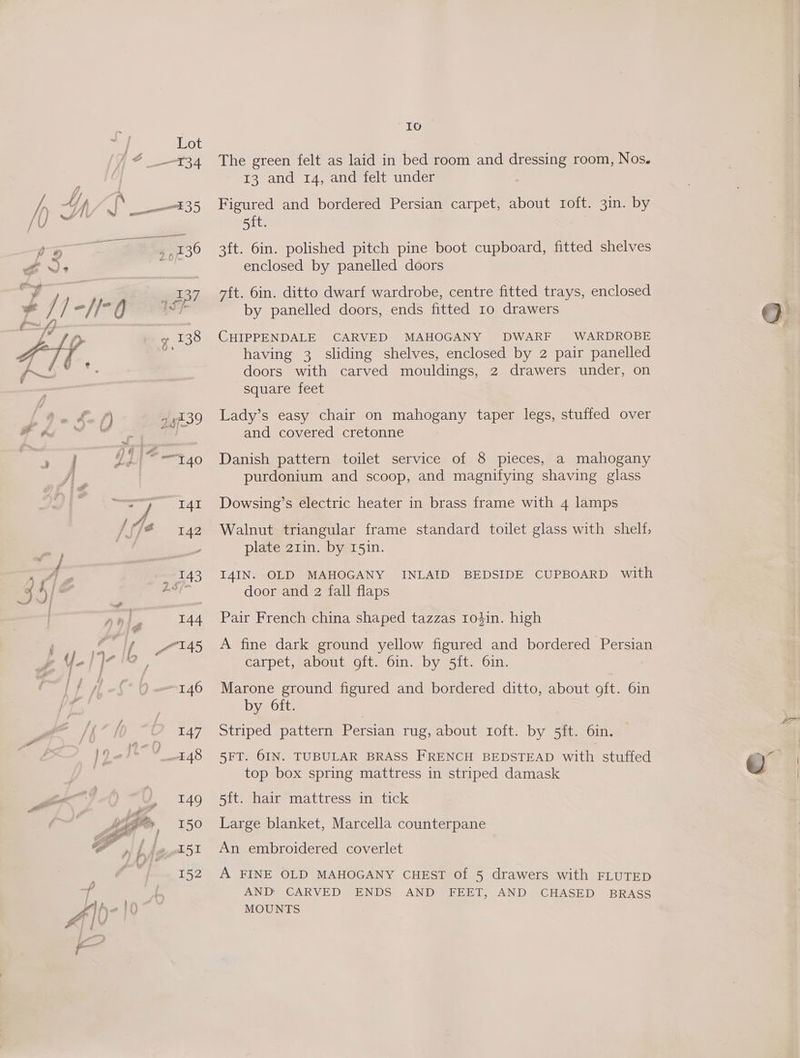 10
Lot
134 The green felt as laid in bed room and dressing room, Nos.
13 and 14, and felt under
135 Figured and bordered Persian carpet, about 10ft. 3in. by
5ft.
136 3ft. 6in. polished pitch pine boot cupboard, fitted shelves
enclosed by panelled doors
137 7ft. 6in. ditto dwarf wardrobe, centre fitted trays, enclosed
by panelled doors, ends fitted 10 drawers
138 CHIPPENDALE CARVED MAHOGANY DWARF WARDROBE
having 3 sliding shelves, enclosed by 2 pair panelled
doors with carved mouldings, 2 drawers under, on
square feet
139 Lady's easy chair on mahogany taper legs, stuffed over
and covered cretonne
140 Danish pattern toilet service of 8 pieces, a mahogany
purdonium and scoop, and magnifying shaving glass
141 Dowsing's electric heater in brass frame with 4 lamps
142 Walnut triangular frame standard toilet glass with shelf,
plate 21in. by 15in.
143 14IN. OLD MAHOGANY INLAID BEDSIDE CUPBOARD with
door and 2 fall flaps
144 Pair French china shaped tazzas 10½in. high
145 A fine dark ground yellow figured and bordered Persian
carpet, about 9ft. 6in. by 5ft. 6in.
146 Marone ground figured and bordered ditto, about 9ft. 6in
by 6ft.
147 Striped pattern Persian rug, about 10ft. by 5ft. 6in.
148 5FT. 6IN. TUBULAR BRASS FRENCH BEDSTEAD with stuffed
top box spring mattress in striped damask
149 5ft. hair mattress in tick
150 Large blanket, Marcella counterpane
151 An embroidered coverlet
152 A FINE OLD MAHOGANY CHEST of 5 drawers with FLUTED
AND CARVED ENDS AND FEET, AND CHASED BRASS
MOUNTS